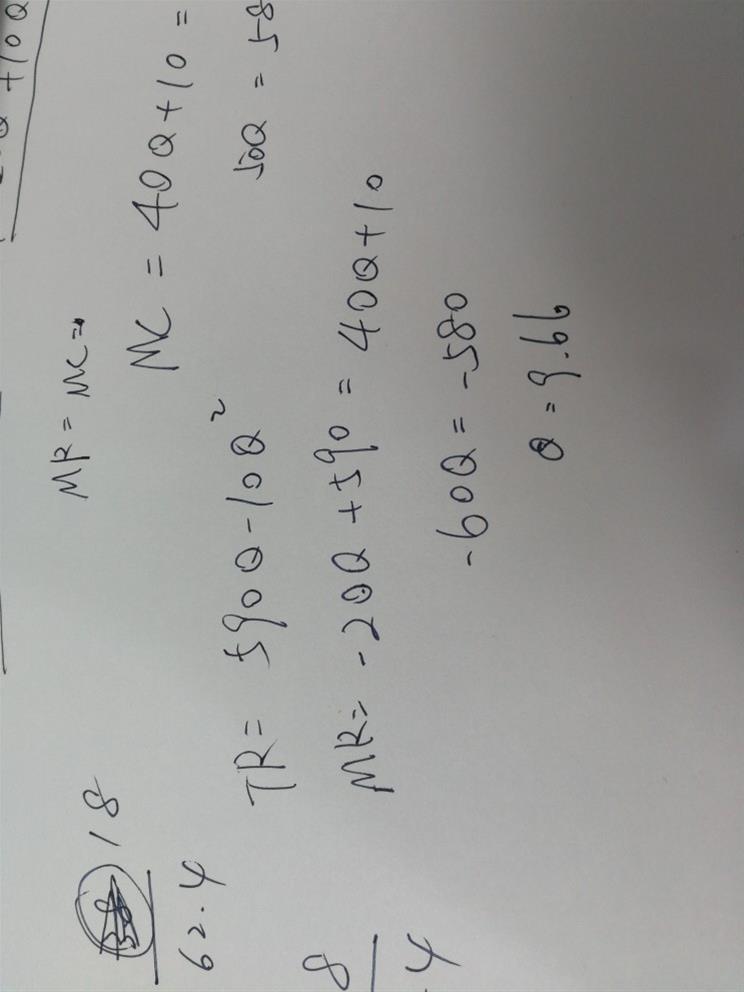 +10Q
MR = MC =
MC = 40Q+10 =
50Q = 58
TR = 590Q-10Q²
MR = -20Q +590 = 40Q+10
-60Q = -580
Q = 9.66
18
62.4
8
.4